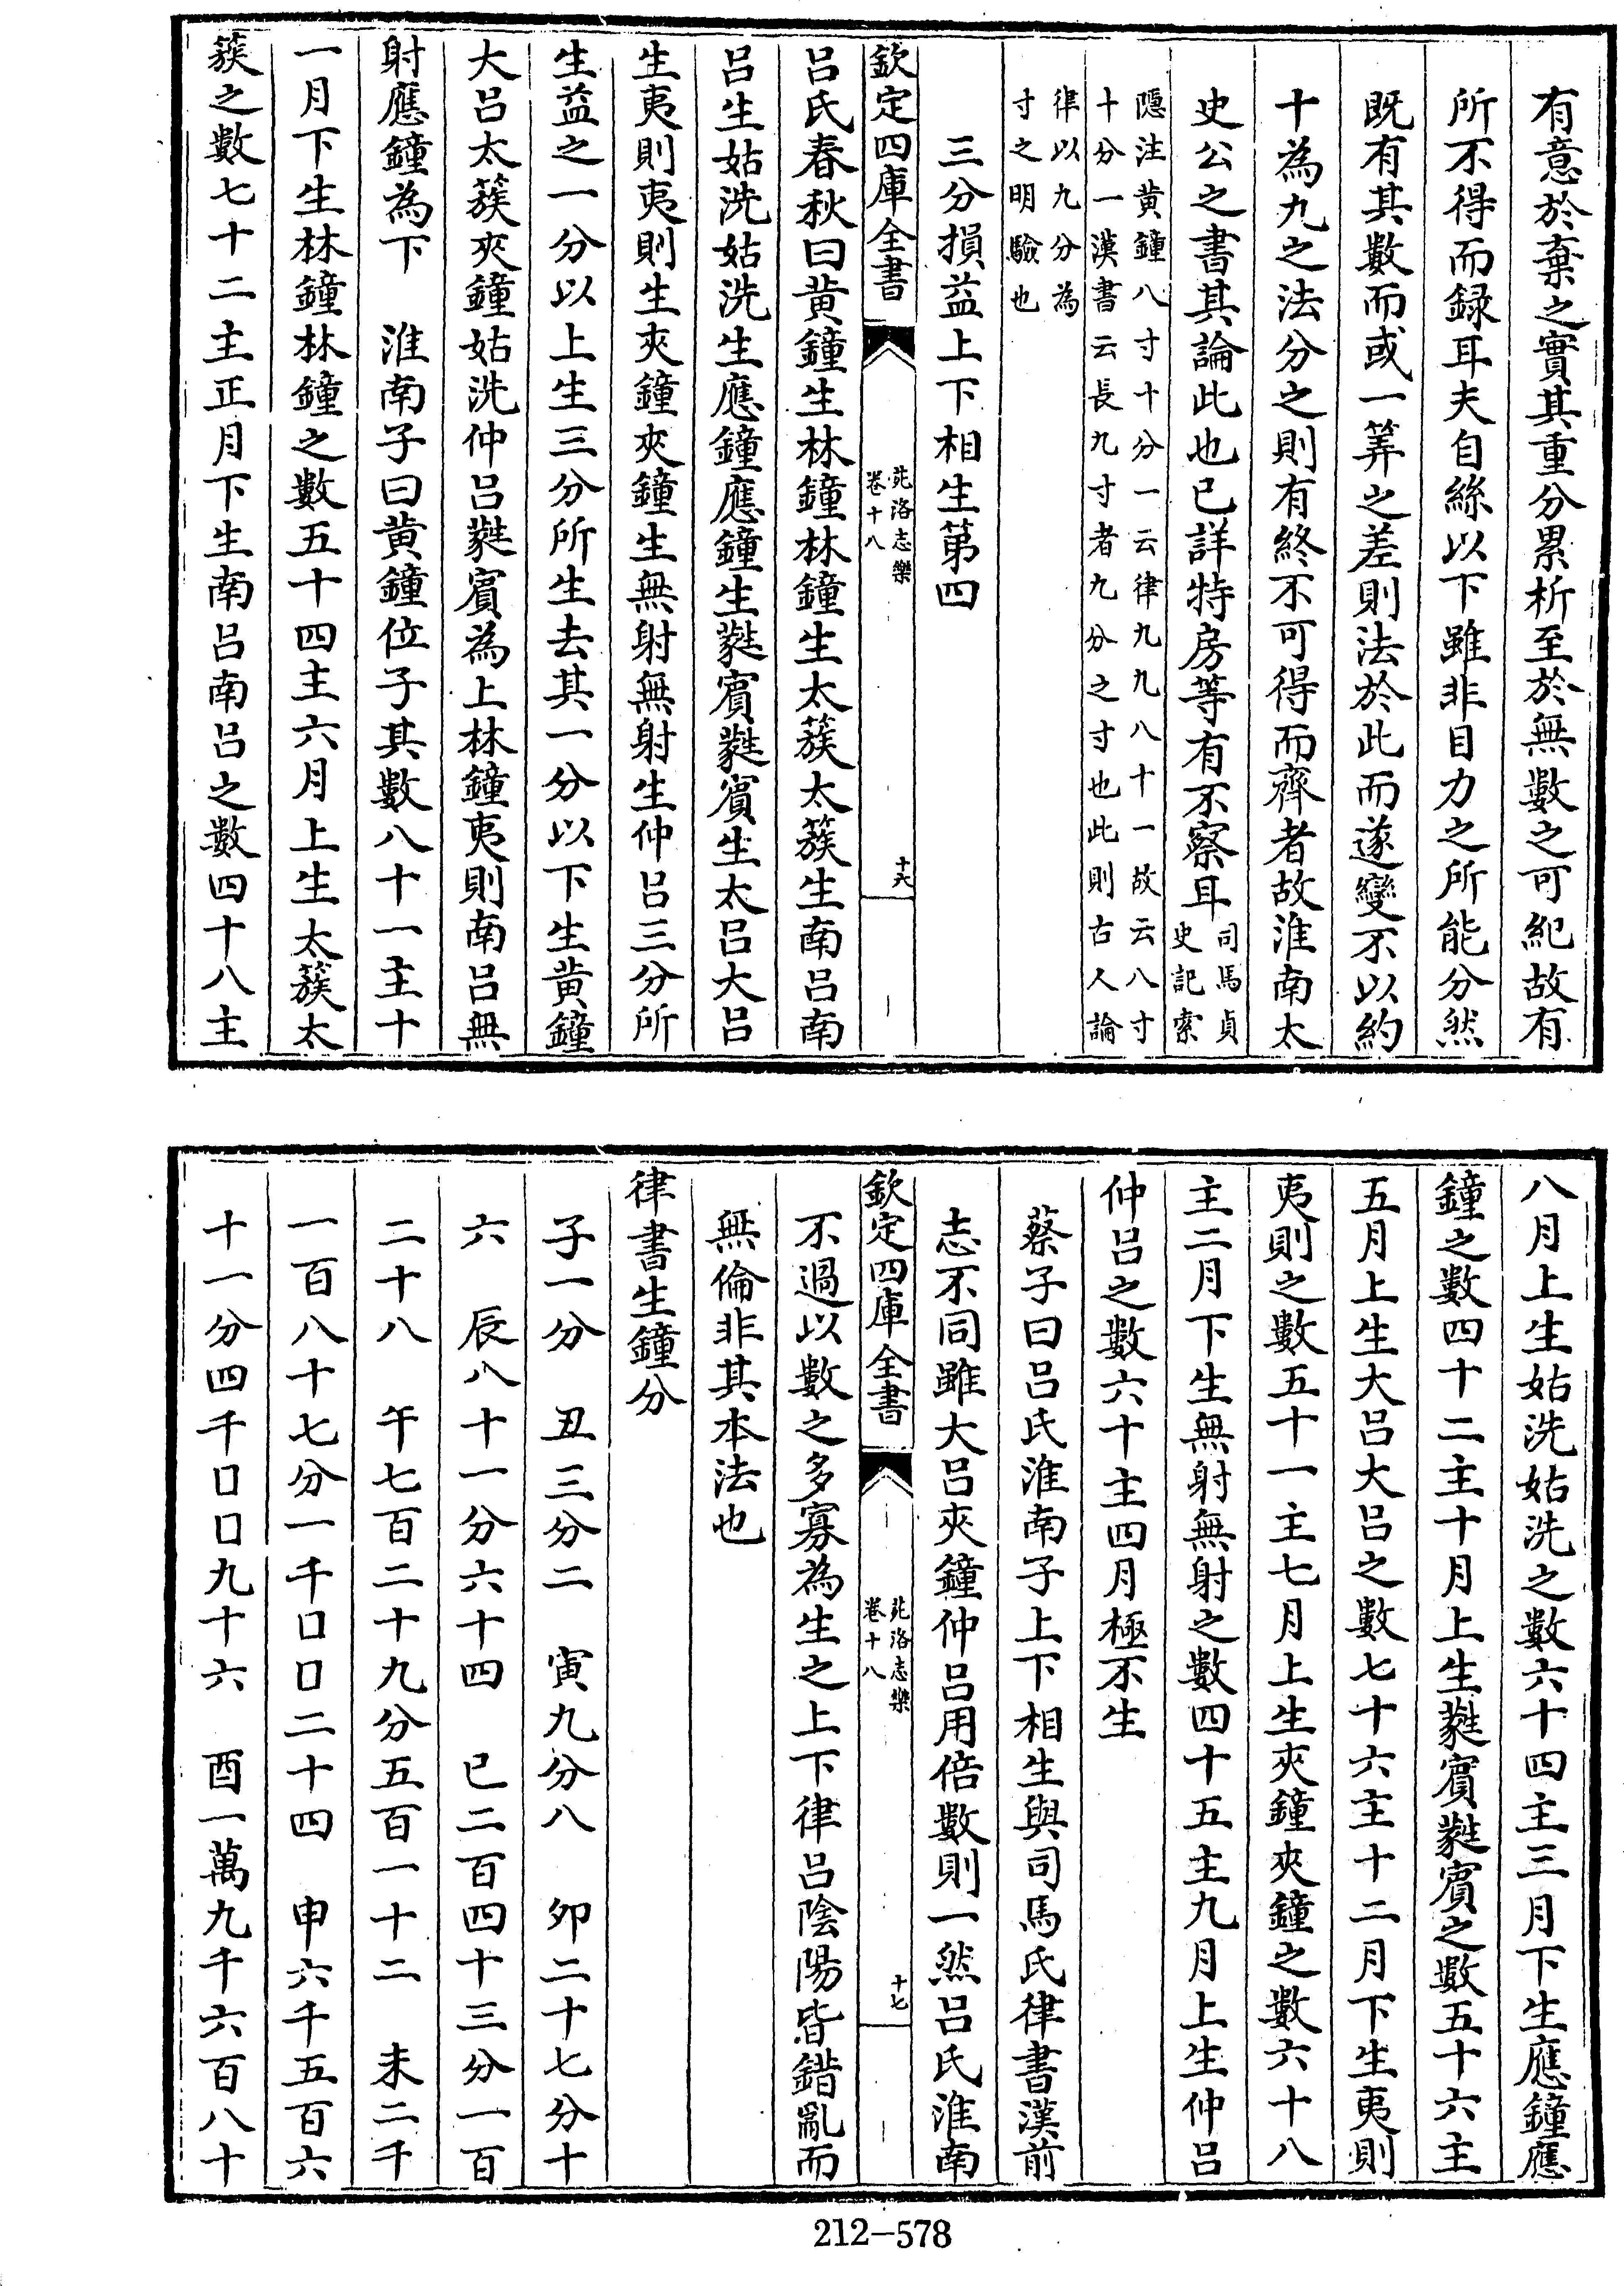 有意於棄之實其重分累析至於無數之可紀故有
所不得而録耳夫自絲以下雖非目力之所能分然
既有其數而或一筭之差則法於此而遂變不以約
十為九之法分之則有終不可得而齊者故淮南太
史公之書其論此也已詳特房等有不察耳司馬貞史記索
隱注黃鐘八寸十分一云律九九八十一故云八寸
十分一漢書云長九寸者九分之寸也此則古人論
律以九分為
寸之明驗也
三分損益上下相生第四
欽定四庫全書
苑洛志樂
卷十八
十六
呂氏春秋曰黃鐘生林鐘林鐘生太蔟太蔟生南呂南
呂生姑洗姑洗生應鐘應鐘生蕤賓蕤賓生太呂大呂
生夷則夷則生夾鐘夾鐘生無射無射生仲呂三分所
生益之一分以上生三分所生去其一分以下生黃鐘
大呂太蔟夾鐘姑洗仲呂蕤賓為上林鐘夷則南呂無
射應鐘為下 淮南子曰黃鐘位子其數八十一主十
一月下生林鐘林鐘之數五十四主六月上生太蔟太
蔟之數七十二主正月下生南呂南呂之數四十八主
八月上生姑洗姑洗之數六十四主三月下生應鐘應
鐘之數四十二主十月上生蕤賓蕤賓之數五十六主
五月上生大呂大呂之數七十六主十二月下生夷則
夷則之數五十一主七月上生夾鐘夾鐘之數六十八
主二月下生無射無射之數四十五主九月上生仲呂
仲呂之數六十主四月極不生
蔡子曰呂氏淮南子上下相生與司馬氏律書漢前
志不同雖大呂夾鐘仲呂用倍數則一然呂氏淮南
欽定四庫全書
苑洛志樂
卷十八
十七
不過以數之多寡為生之上下律呂陰陽皆錯亂而
無倫非其本法也
律書生鐘分
子一分 丑三分二 寅九分八 夘二十七分十
六 辰八十一分六十四 巳二百四十三分一百
二十八 午七百二十九分五百一十二 未二千
一百八十七分一千口口二十四 申六千五百六
十一分四千口口九十六 酉一萬九千六百八十
212-578